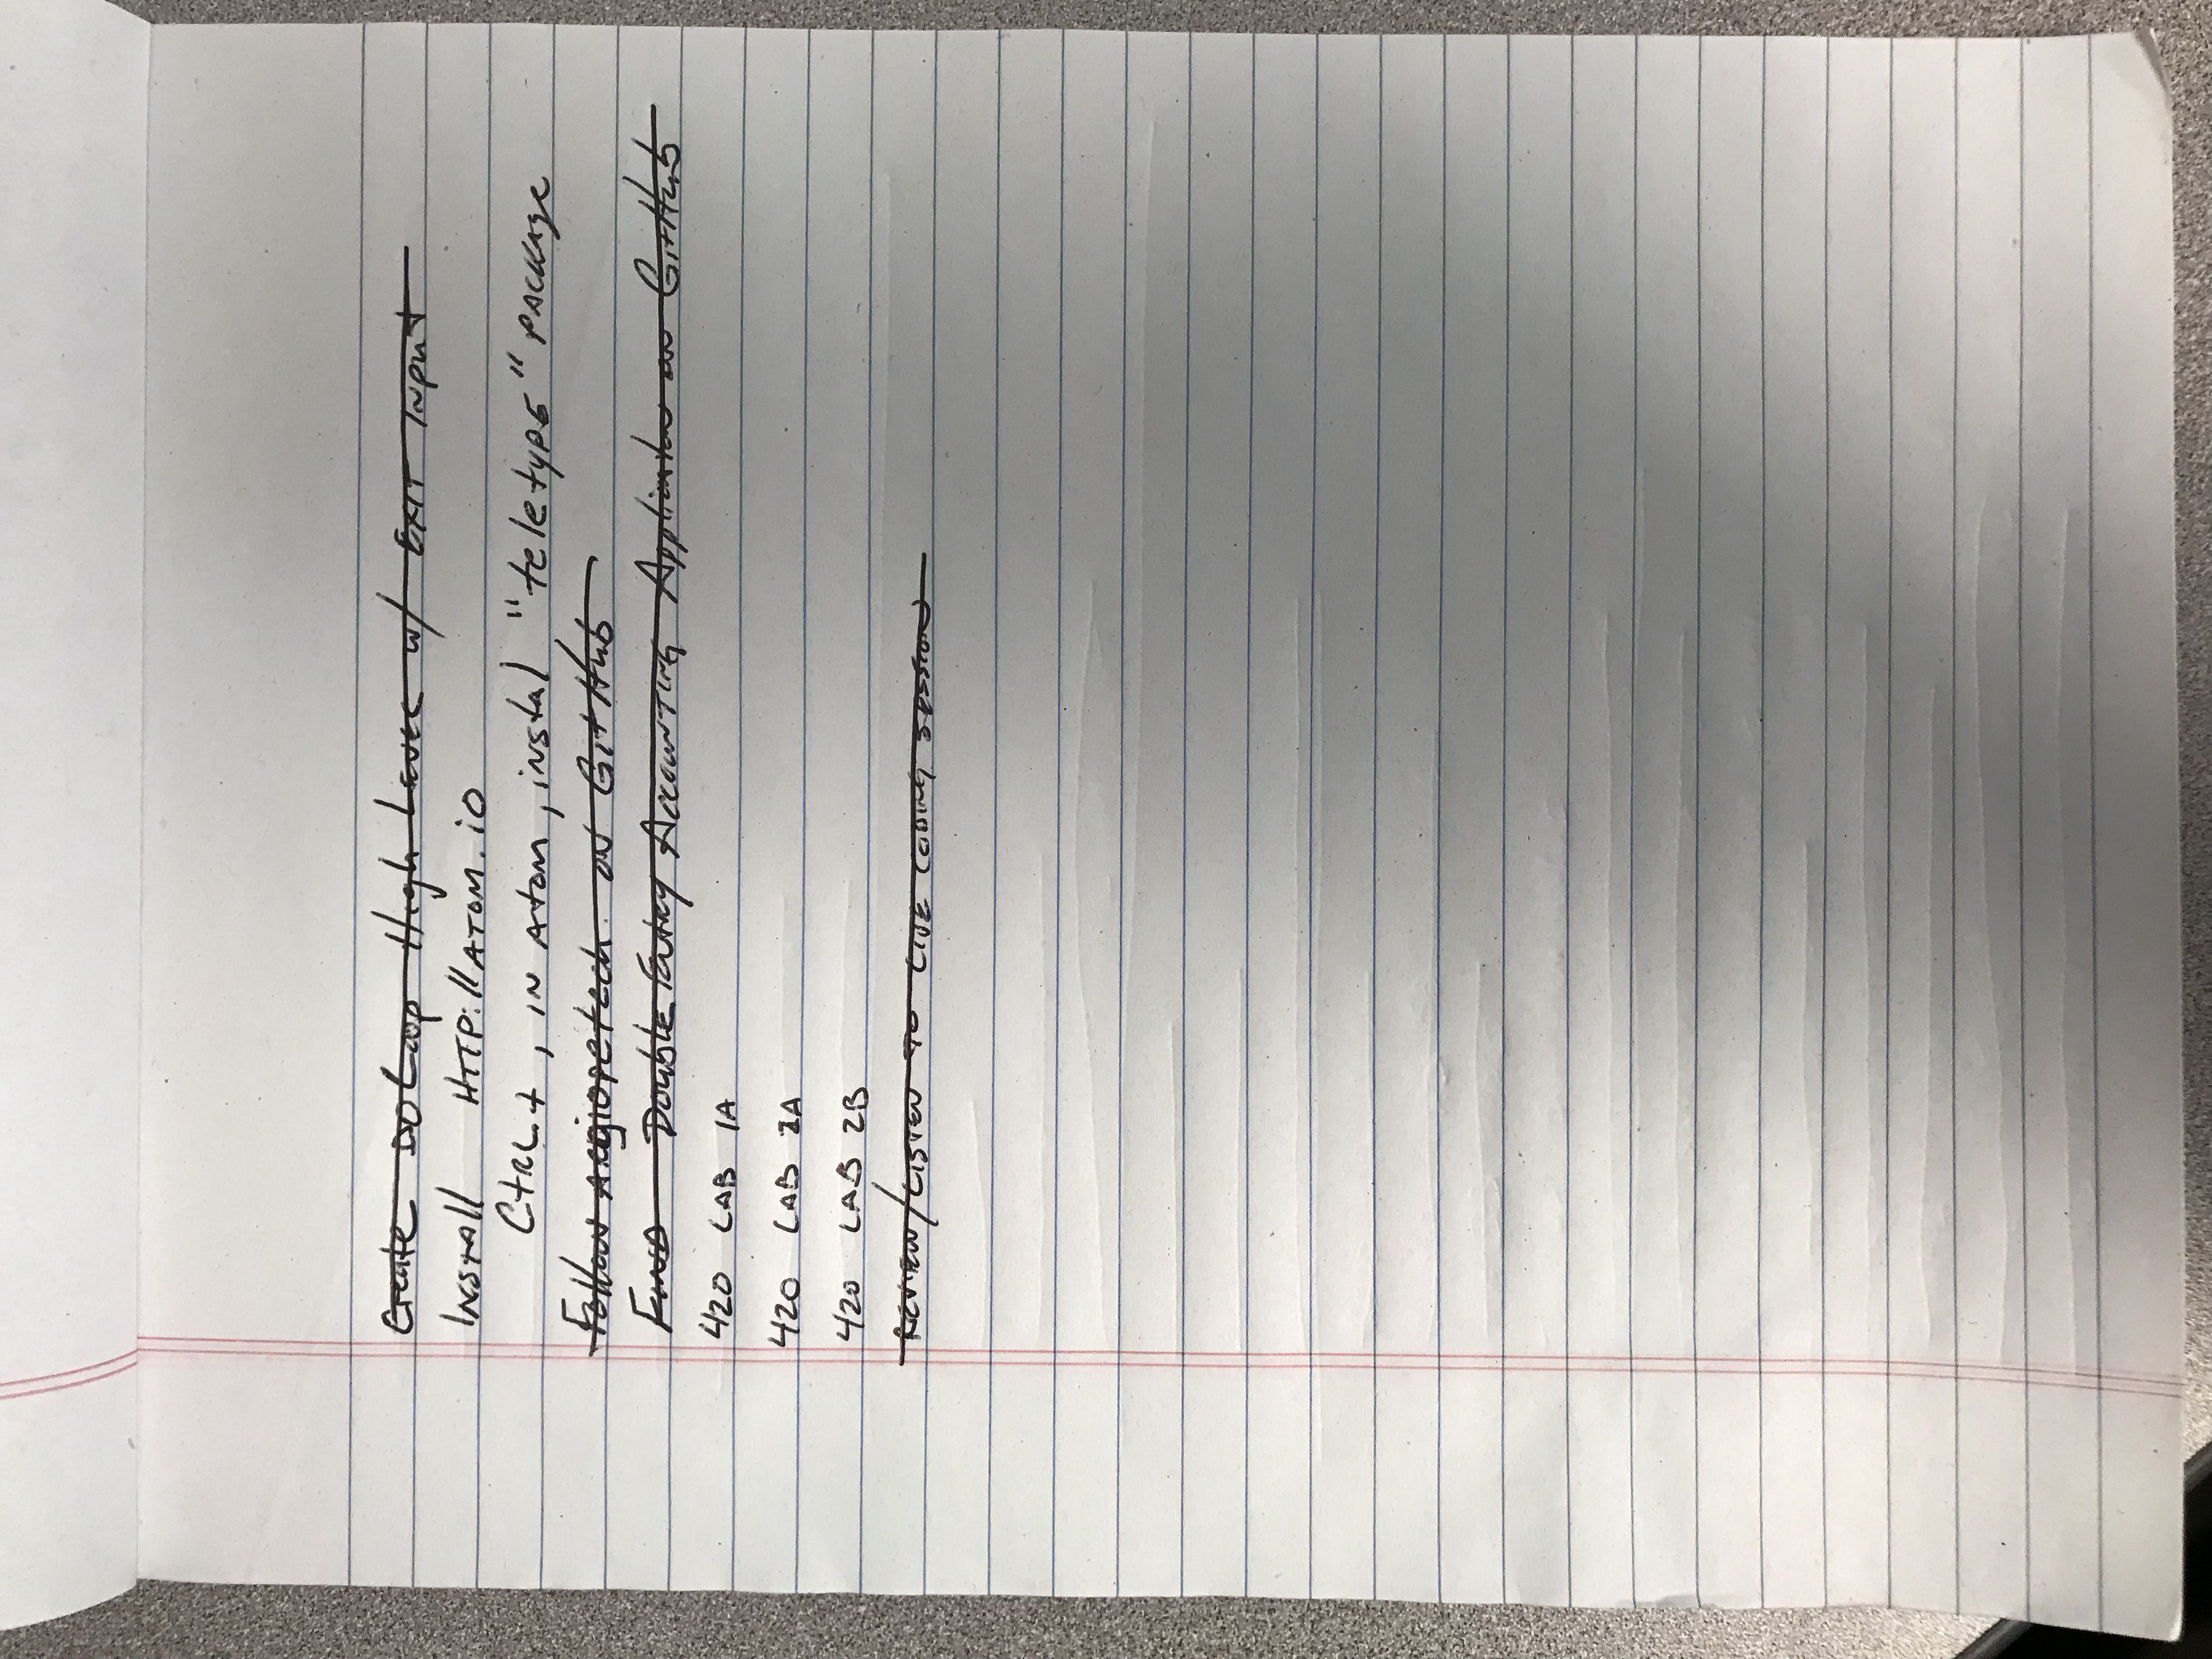 Create DO Loop High Level w/ EXIT Input
INSTAll HTTP://ATOM.iO
CtRL + , IN Atom, instal "teletype" PACKAge
Follow argiopetech on GitHub
FIND Double Entry Accounting Application on GitHub
420 LAB 1A
420 LAB 2A
420 LAB 2B
REVIEW/LISTEN TO LIVE CODING SESSION